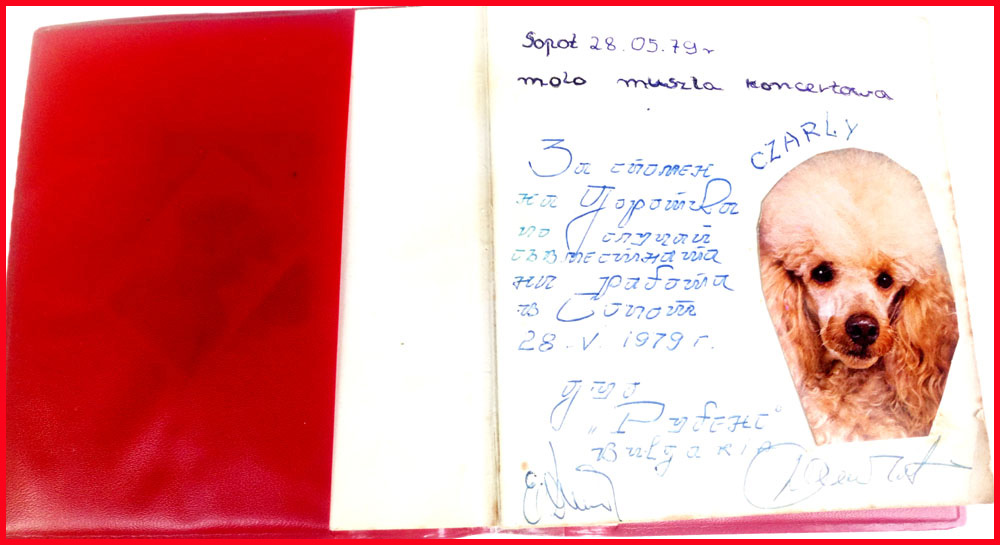 Sopot 28.05.79 r
molo muszla koncertowa
CZARLY
За спомен
на Доротка
по случай
съвместната
ни работа
в Сопот
28.V.1979 г.
дуо
„Рубенс"
Bulgaria